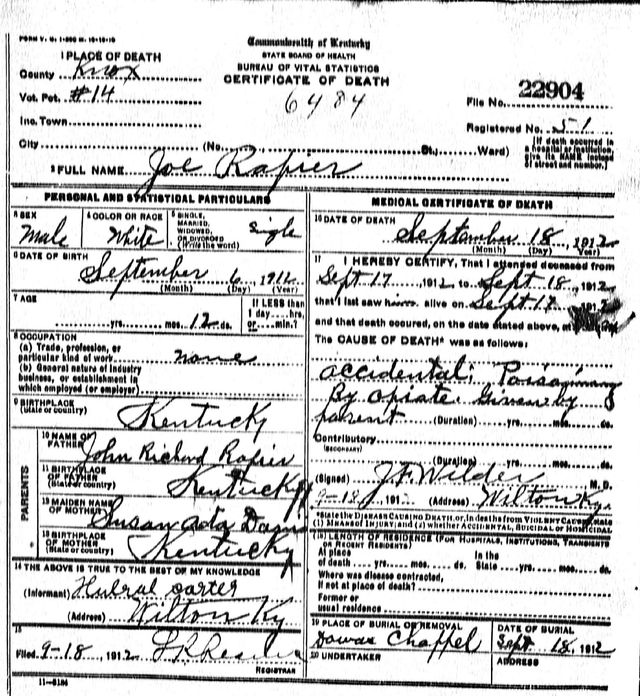 FORM V. S. 1-200 M. 10-10-10
Commonwealth of Kentucky
STATE BOARD OF HEALTH
BUREAU OF VITAL STATISTICS
CERTIFICATE OF DEATH
6484
1 PLACE OF DEATH
County Knox
Vot. Pct. #14
Inc. Town
City (No. St.; Ward)
File No. 22904
Registered No. 51
[If death occurred in
a hospital or institution,
give its NAME instead
of street and number.]
2 FULL NAME Joe Rapier
PERSONAL AND STATISTICAL PARTICULARS
3 SEX
Male
4 COLOR OR RACE
White
5 SINGLE,
MARRIED,
WIDOWED,
OR DIVORCED
(Write the word)
Single
6 DATE OF BIRTH
September 6, 1912
(Month) (Day) (Year)
7 AGE
yrs. mos. 12 ds.
If LESS than
1 day....hrs.
or.....min.?
8 OCCUPATION
(a) Trade, profession, or
particular kind of work none
(b) General nature of industry
business, or establishment in
which employed (or employer)
9 BIRTHPLACE
(State or country)
Kentucky
PARENTS
10 NAME OF
FATHER
John Richard Rapier
11 BIRTHPLACE
OF FATHER
(State or country)
Kentucky
12 MAIDEN NAME
OF MOTHER
Susan Ada Davis
13 BIRTHPLACE
OF MOTHER
(State or country)
Kentucky
14 THE ABOVE IS TRUE TO THE BEST OF MY KNOWLEDGE
(Informant) Carter
(Address) Wilton Ky
15
Filed 9-18, 1912
REGISTRAR
11-5184
MEDICAL CERTIFICATE OF DEATH
16 DATE OF DEATH
September 18, 1912
(Month) (Day) (Year)
17 I HEREBY CERTIFY, That I attended deceased from
Sept 17, 1912 to Sept 18, 1912
that I last saw him alive on Sept 17 1912
and that death occured, on the date stated above, at
The CAUSE OF DEATH* was as follows:
accidental; Poisoning
By opiate Given by
parent (Duration) yrs. mos. ds.
Contributory
(SECONDARY)
(Duration) yrs. mos. ds.
(Signed) J.F. Wilder M. D.
9-18, 1912 (Address) Wilton Ky.
*State the DISEASE CAUSING DEATH, or, in deaths from VIOLENT CAUSES, state
(1) MEANS OF INJURY; and (2) whether ACCIDENTAL, SUICIDAL or HOMICIDAL
18 LENGTH OF RESIDENCE (FOR HOSPITALS, INSTITUTIONS, TRANSIENTS
OR RECENT RESIDENTS)
At place In the
of death yrs. mos. ds. State yrs. mos. ds.
Where was disease contracted,
If not at place of death?
Former or
usual residence
19 PLACE OF BURIAL OR REMOVAL
Chappel
DATE OF BURIAL
Sept 18, 1912
20 UNDERTAKER
ADDRESS